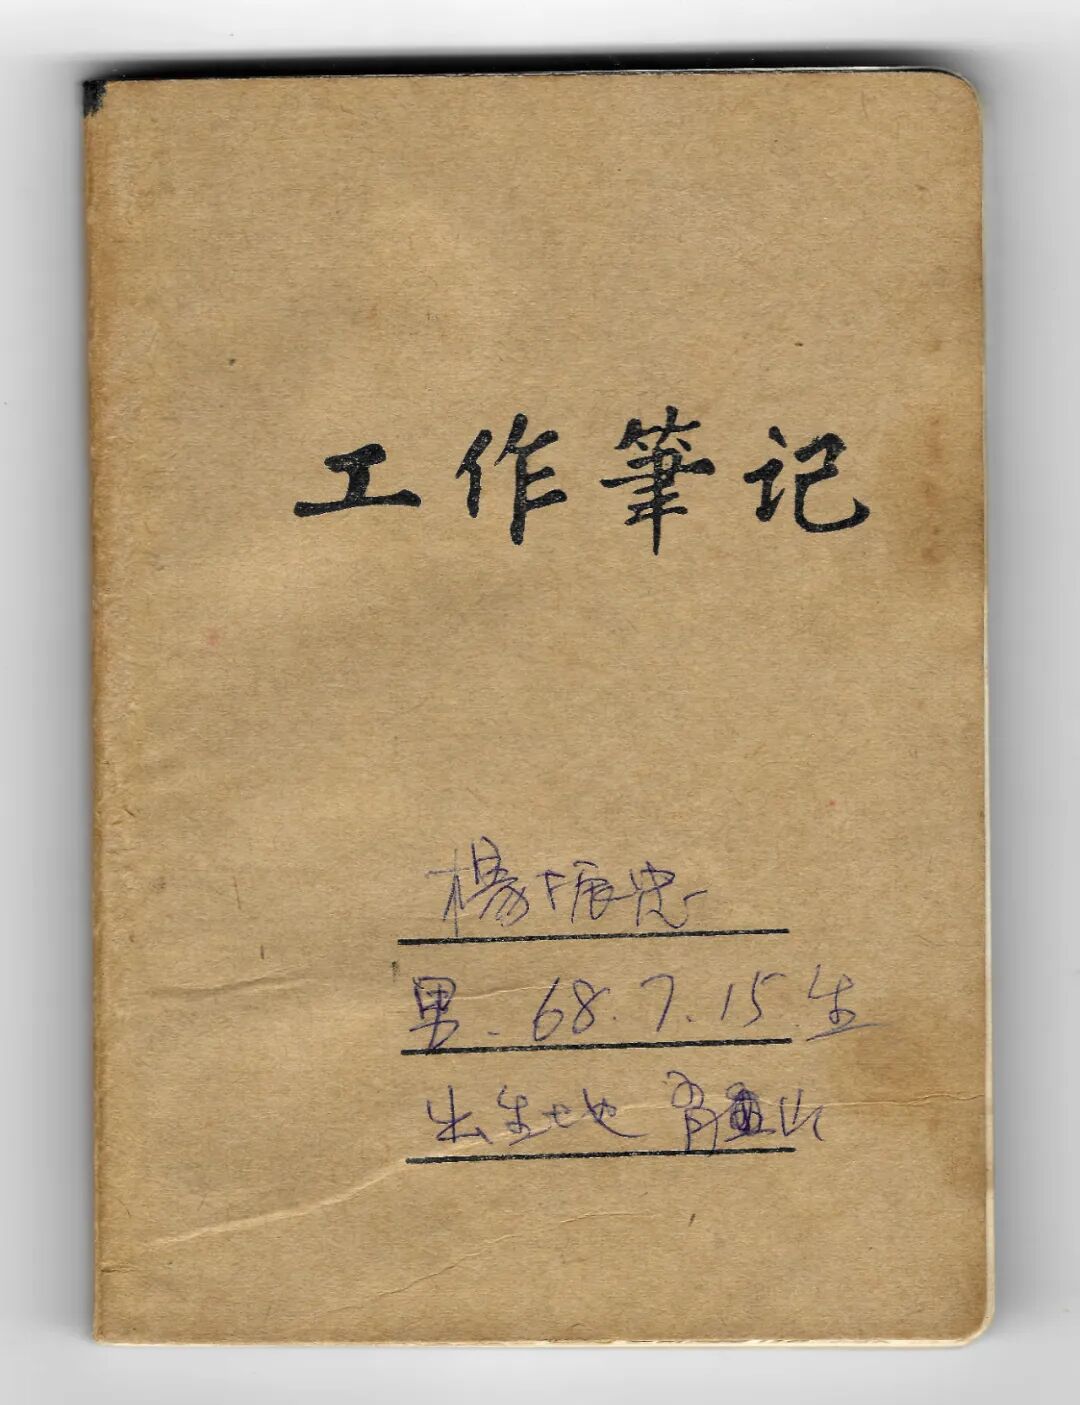 工作筆记
楊振忠
男.68.7.15.生
出生地 山